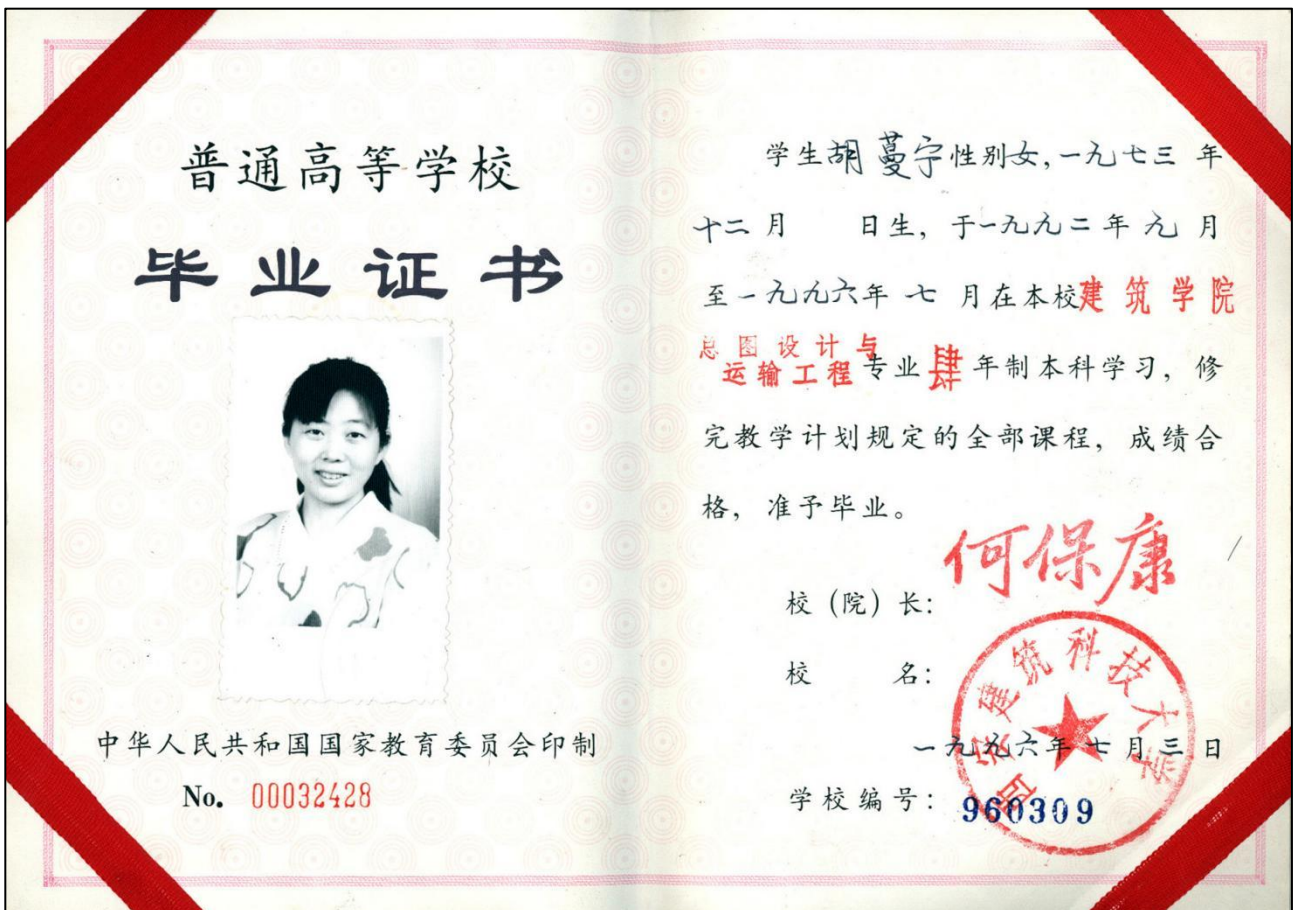 普通高等学校
毕业证书
中华人民共和国国家教育委员会印制
No. 00032428
学生胡蔓宁性别女,一九七三 年
十二月 日生, 于一九九二年 九 月
至一九九六年 七 月在本校建筑学院
总图设计与
运输工程专业肆年制本科学习, 修
完教学计划规定的全部课程, 成绩合
格, 准予毕业。
校 (院) 长: 何保康
校 名:
西安建筑科技大学
一九九六年七月三日
学校编号: 960309